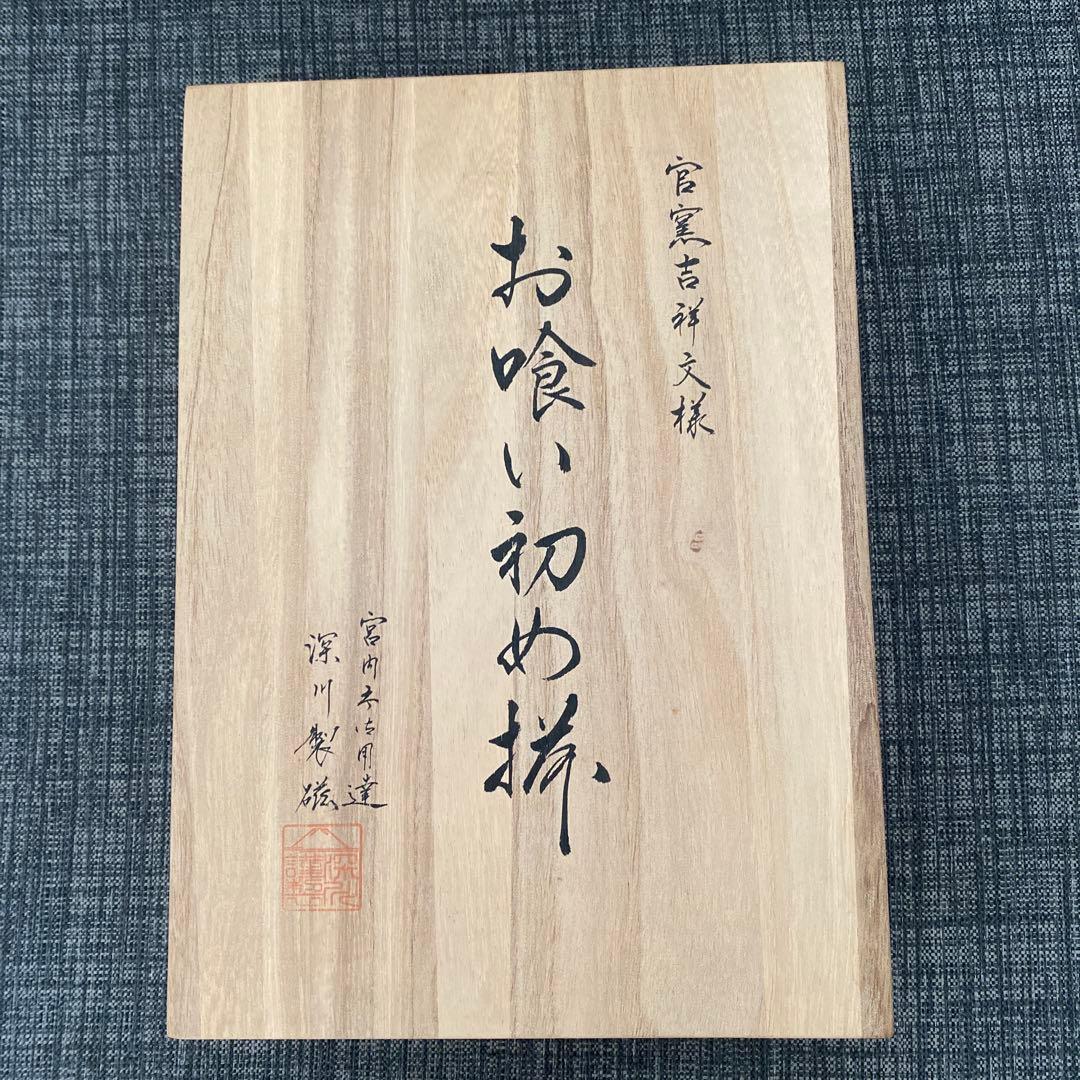 官窯吉祥文様
お喰い初め揃
宮内庁御用達
深川製磁
深川謹製